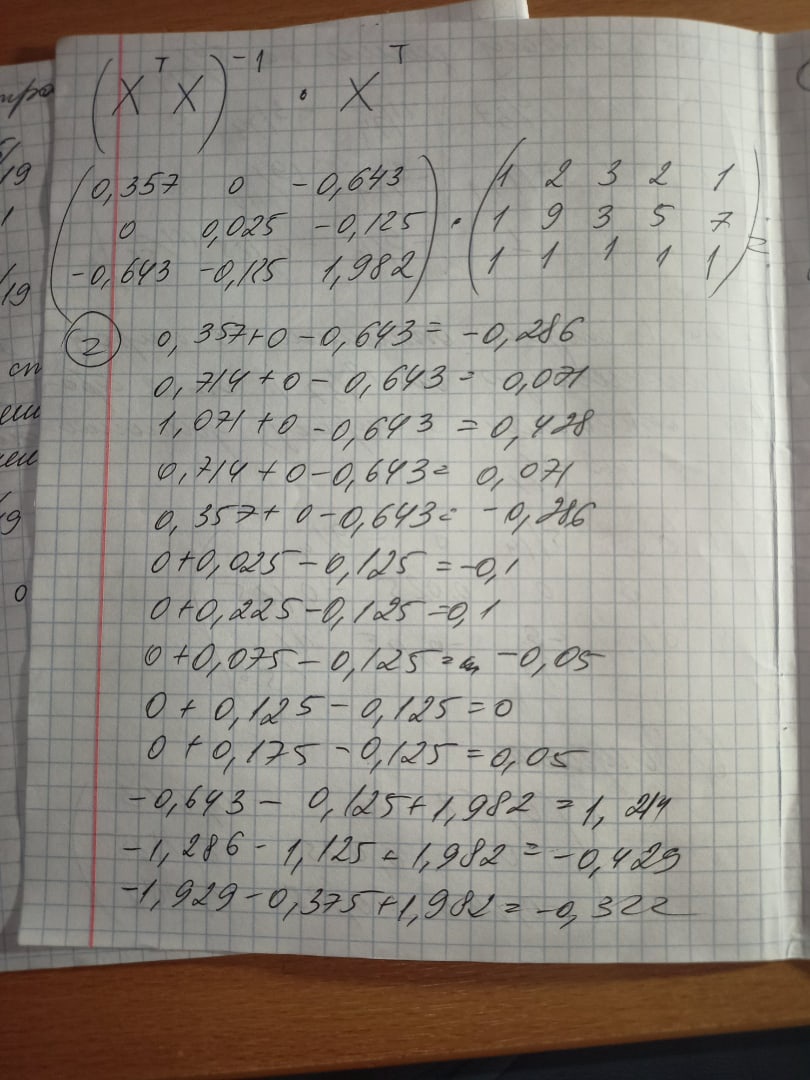 (X^T X)^-1 · X^T
(0,357 0 -0,643) (1 2 3 2 1)
(0 0,025 -0,125) · (1 9 3 5 7) =
(-0,643 -0,125 1,982) (1 1 1 1 1)
2 0,357+0-0,643= -0,286
0,714+0-0,643= 0,071
1,071+0-0,643=0,428
0,714+0-0,643= 0,071
0,357+0-0,643= -0,286
0+0,025-0,125=-0,1
0+0,225-0,125=0,1
0+0,075-0,125= -0,05
0+0,125-0,125=0
0+0,175-0,125=0,05
-0,643-0,125+1,982=1,214
-1,286-1,125+1,982=-0,429
-1,929-0,375+1,982=-0,322